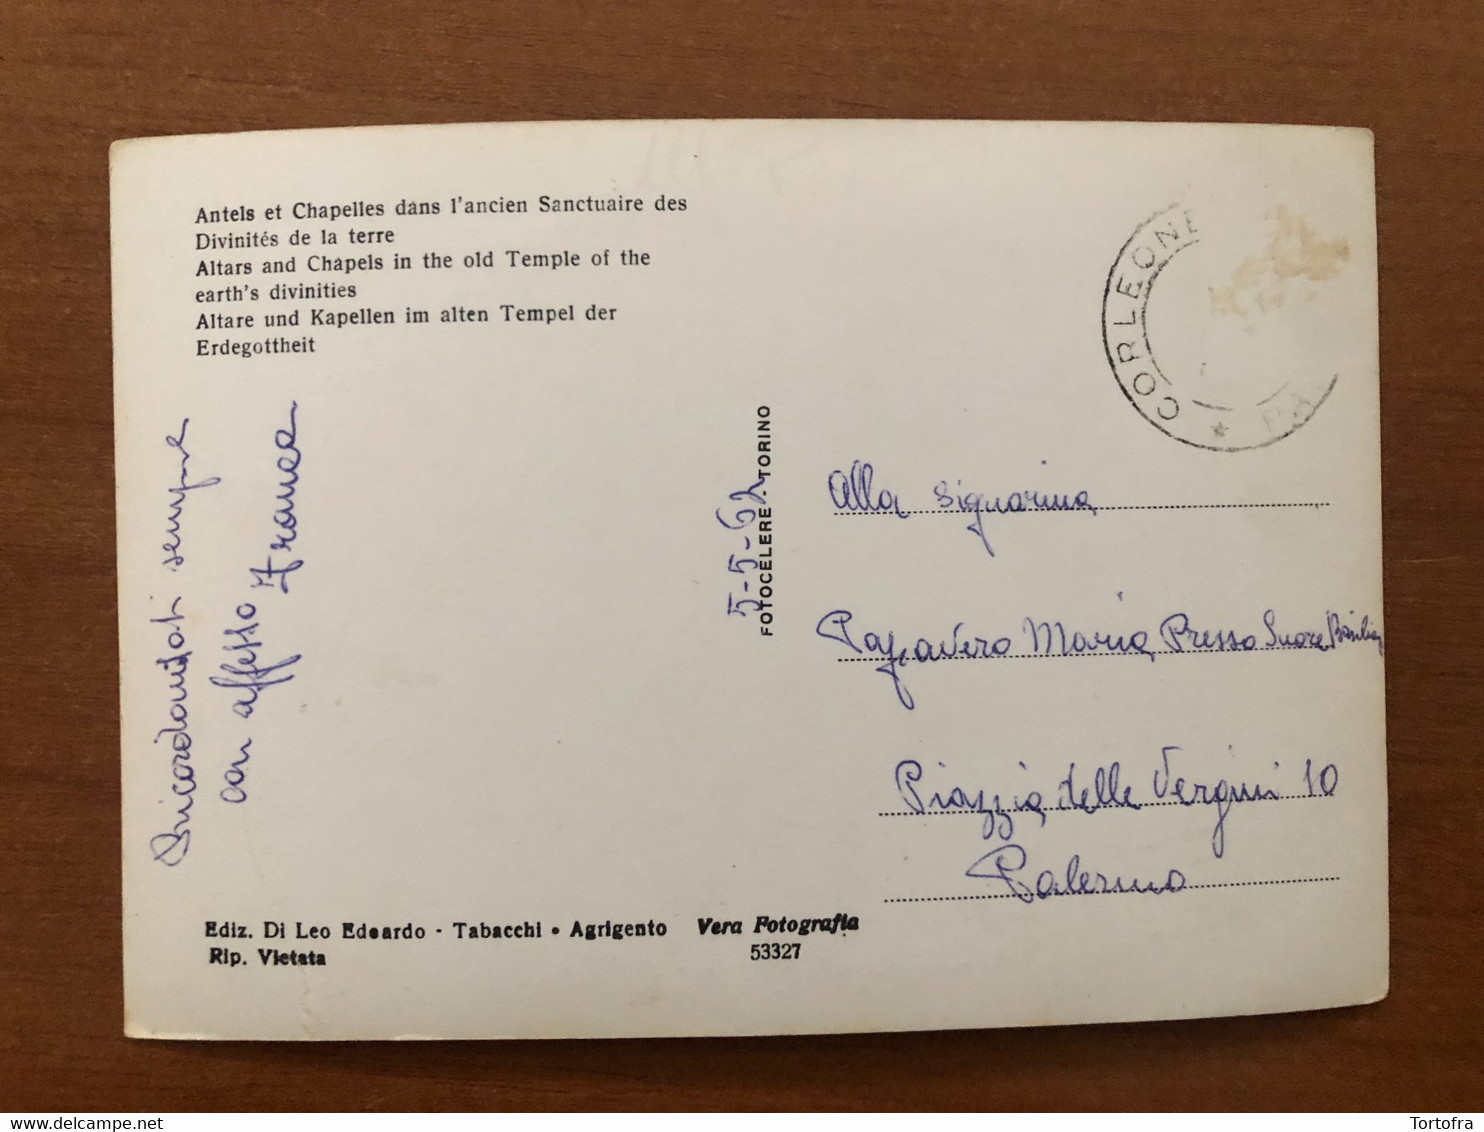 Antels et Chapelles dans l'ancien Sanctuaire des
Divinités de la terre
Altars and Chapels in the old Temple of the
earth's divinities
Altare und Kapellen im alten Tempel der
Erdegottheit
Ricordandoti sempre
con affetto Franca
5-5-62
FOTOCELERE - TORINO
CORLEONE * PA
Alla Signorina
Maria Presso Suore
Piazza delle Vergini 10
Palermo
Ediz. Di Leo Edoardo - Tabacchi • Agrigento Vera Fotografia
Rip. Vietata 53327
www.delcampe.net
Tortofra